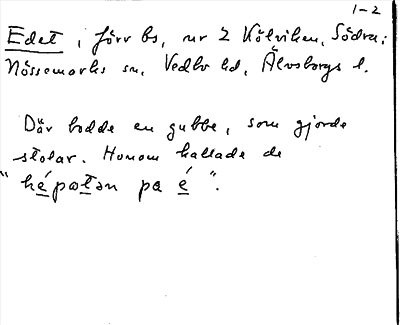 1-2
Edet, förr bs, ur 2 Kölviken, Södra;
Nössemarks sn, Vedbo hd, Älvsborgs l.
Där bodde en gubbe, som gjorde
stolar. Honom kallade de
"hépatən pa é".